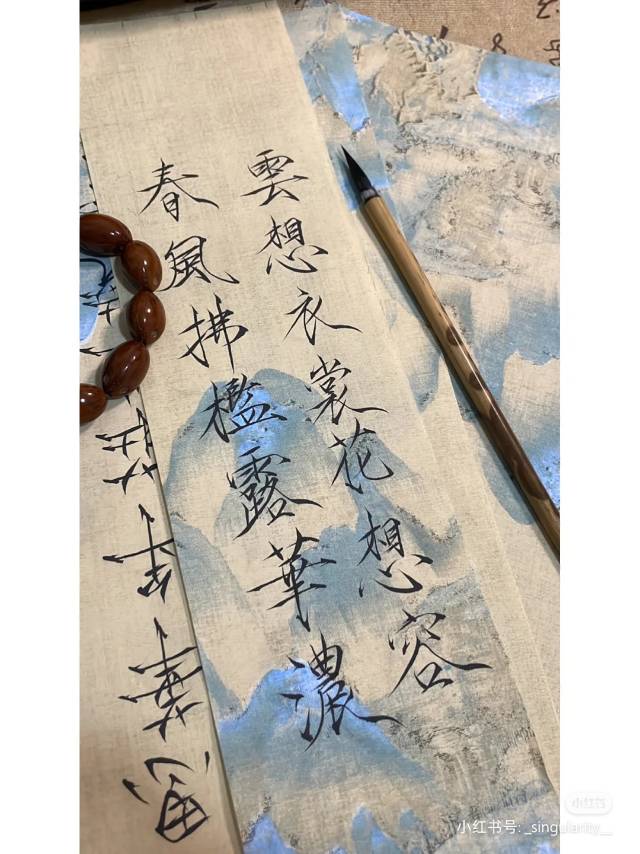 雲想衣裳花想容
春風拂檻露華濃
小红书
小红书号: _singularity__